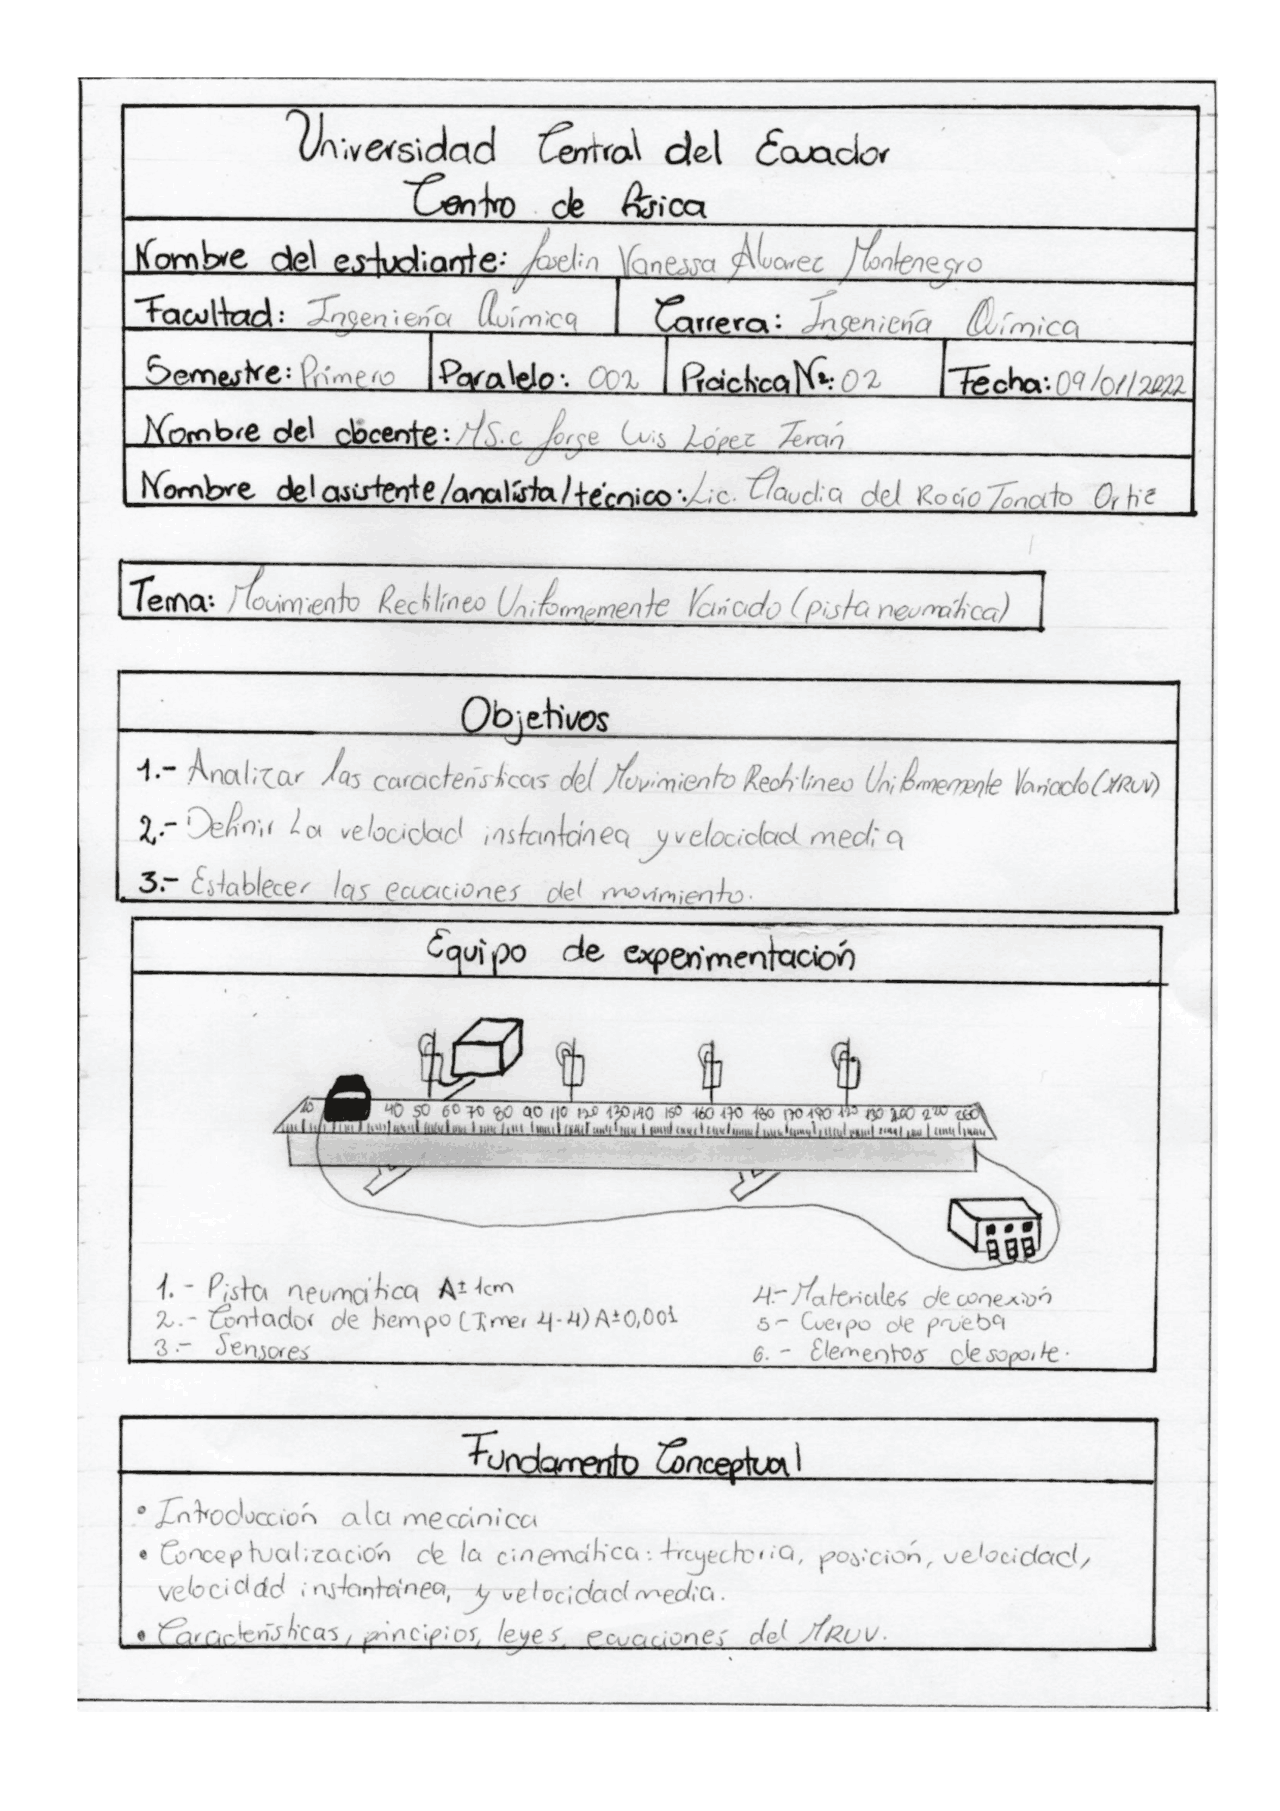 Universidad Central del Ecuador
Centro de física
Nombre del estudiante: Joselin Vanessa Alvarez Montenegro
Facultad: Ingeniería Química Carrera: Ingeniería Química
Semestre: Primero Paralelo: 002 Práctica Nº: 02 Fecha: 09/01/2022
Nombre del docente: MS.c Jorge Luis López Terán
Nombre del asistente/analista/técnico: Lic. Claudia del Rocío Tonato Ortiz
Tema: Movimiento Rectilíneo Uniformemente Variado (pista neumática)
Objetivos
1.- Analizar las características del Movimiento Rectilíneo Uniformemente Variado (MRUV)
2.- Definir La velocidad instantánea y velocidad media
3.- Establecer las ecuaciones del movimiento.
Equipo de experimentación
40 50 60 70 80 90 110 120 130 140 150 160 170 180 190 200
1.- Pista neumática A± 1cm
2.- Contador de tiempo (Timer 4-4) A±0,001
3.- Sensores
4.- Materiales de conexión
5- Cuerpo de prueba
6.- Elementos de soporte.
Fundamento Conceptual
• Introducción a la mecánica
• Conceptualización de la cinemática: trayectoria, posición, velocidad,
velocidad instantánea, y velocidad media.
• Características, principios, leyes, ecuaciones del MRUV.